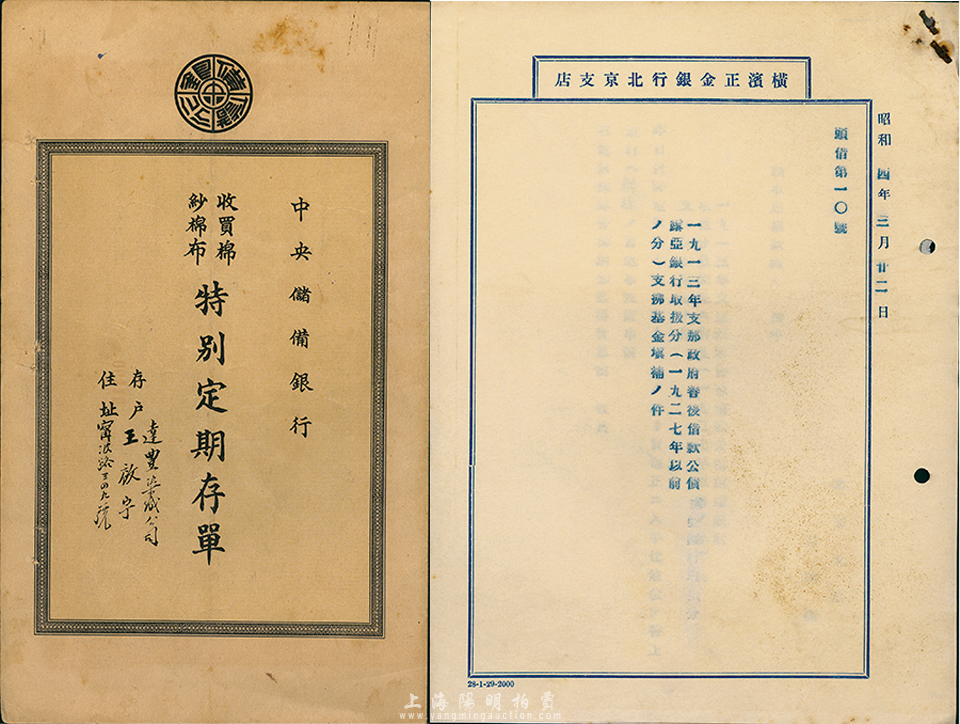 中央儲備銀行
收買棉
紗棉布
特別定期存單
存戶
達豐染織公司
王啟宇
住址
寧波路
號
橫濱正金銀行北京支店
昭和 四年 三月廿二日
頭借第一〇號
一九一三年支那政府善後借款公債
露亞銀行取扱分(一九二七年以前
ノ分)支拂基金填補ノ件
28-1-29-2000
上海陽明拍賣
www.yangmingauction.com